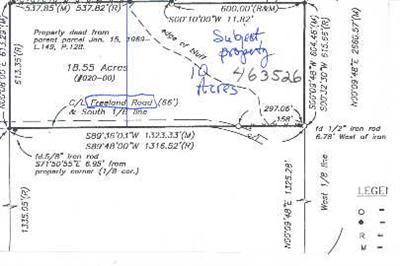 537.85'(M) 537.82'(R)
600.00'(R&M)
S00°10'00"W 11.82'
Property deed from
parent parcel Jan. 15, 1969-
L.149, P.128.
edge of bluff
Subject
property
18.55 Acres
(#020-00)
10
Acres
463526
613.35'(R)
C/L Freeland Road (66')
& South 1/8 line
297.06'
158'
S89°36'03"W 1323.33'(M)
S89°48'00"W 1316.52'(R)
fd 1/2" iron rod
6.78' West of iron
fd.5/8" iron rod
S71°50'55"E 6.95' from
property corner (1/8 cor.)
1335.05'(R)
N00°09'48"E 1325.28'
West 1/8 line
N00°09'48"E 2650.57'(M)
LEGE
R
M